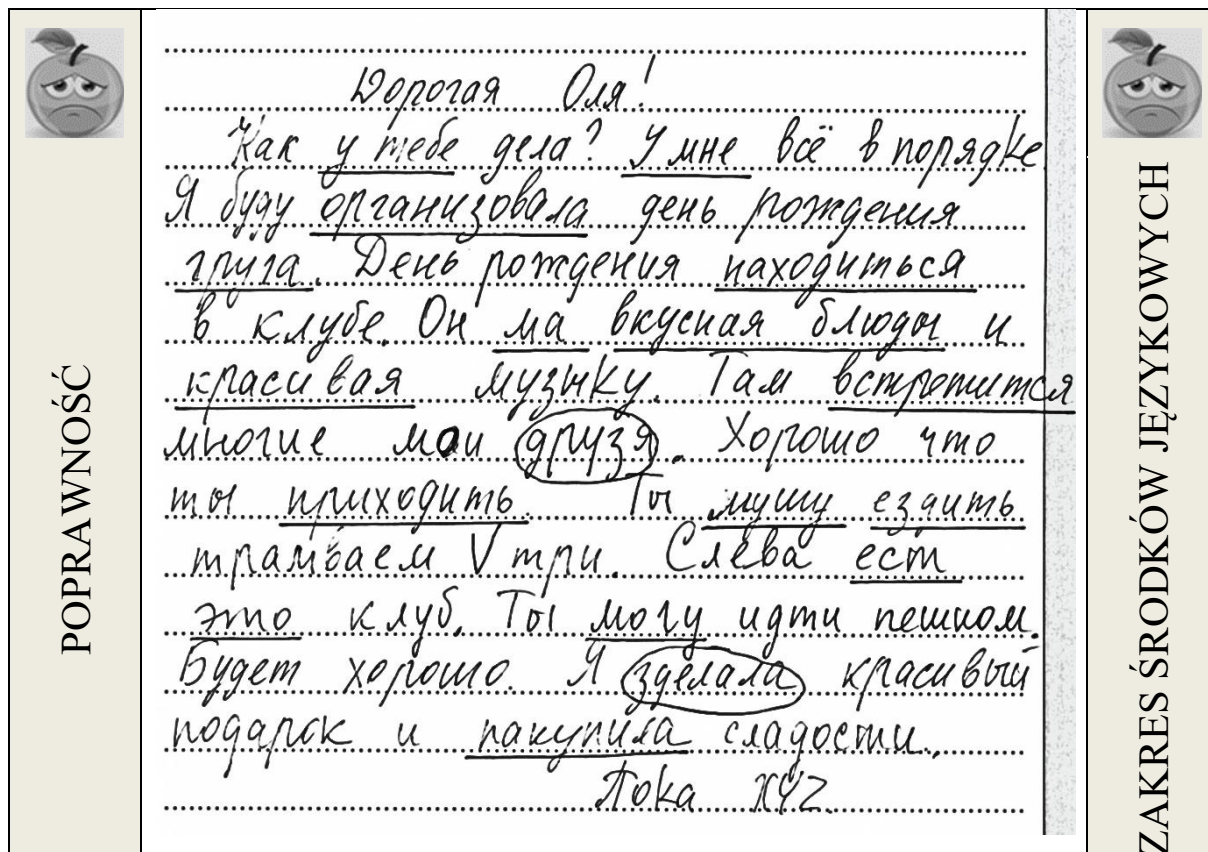 POPRAWNOŚĆ
Дорогая Оля!
Как у тебе дела? У мне всё в порядке
Я буду организовала день рождения
друга. День рождения находиться
в клубе. Он ма вкусная блюды и
красивая музыку. Там встретится
многие мои друзя. Хорошо что
ты приходить. Ты мушу ездить
трамваем V три. Слева ест
это клуб. Ты могу идти пешком.
Будет хорошо. Я зделала красивый
подарок и пакупила сладости.
Пока XYZ.
ZAKRES ŚRODKÓW JĘZYKOWYCH